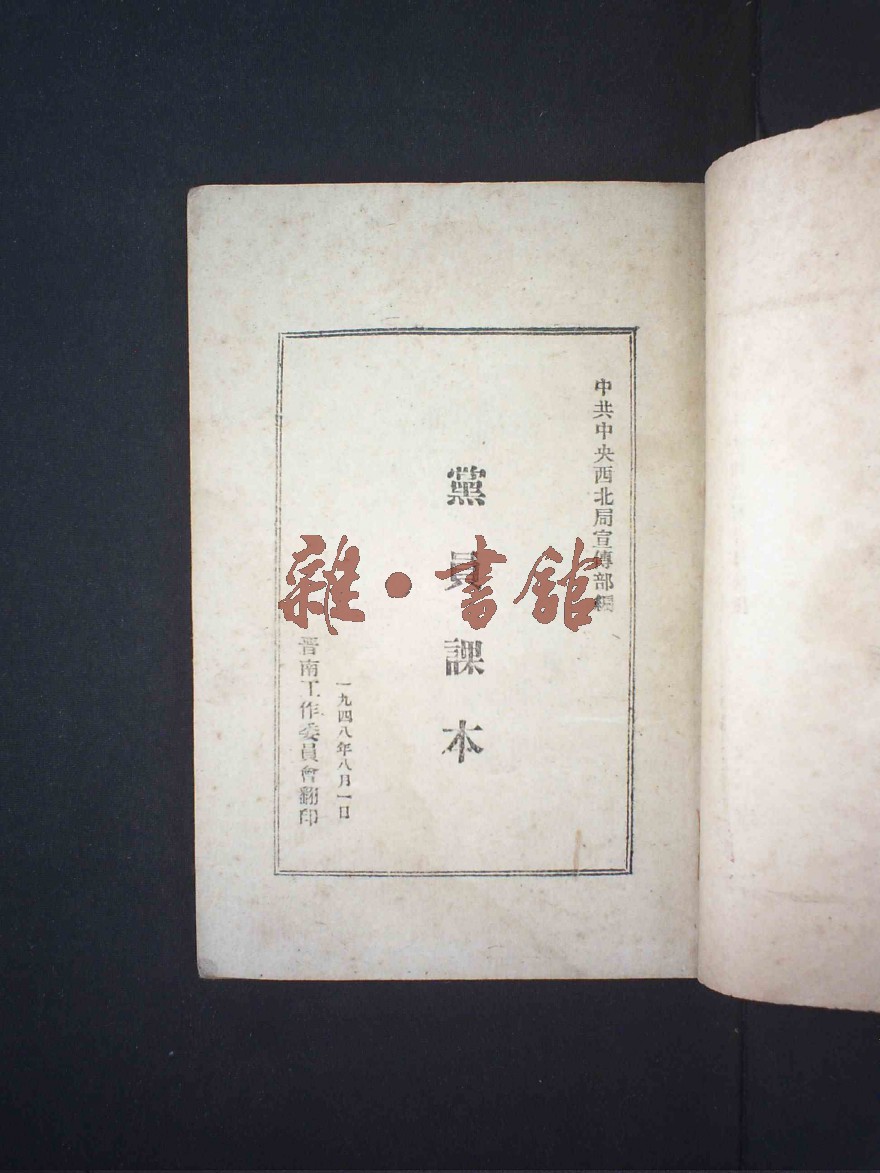 中共中央西北局宣傳部編
黨員課本
一九四八年八月一日
晋南工作委員會翻印
雜·書館